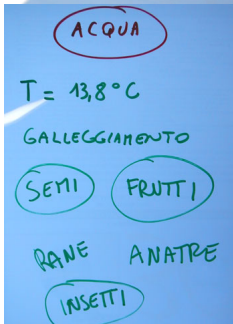 ACQUA
T = 13,8°C
GALLEGGIAMENTO
SEMI FRUTTI
RANE ANATRE
INSETTI